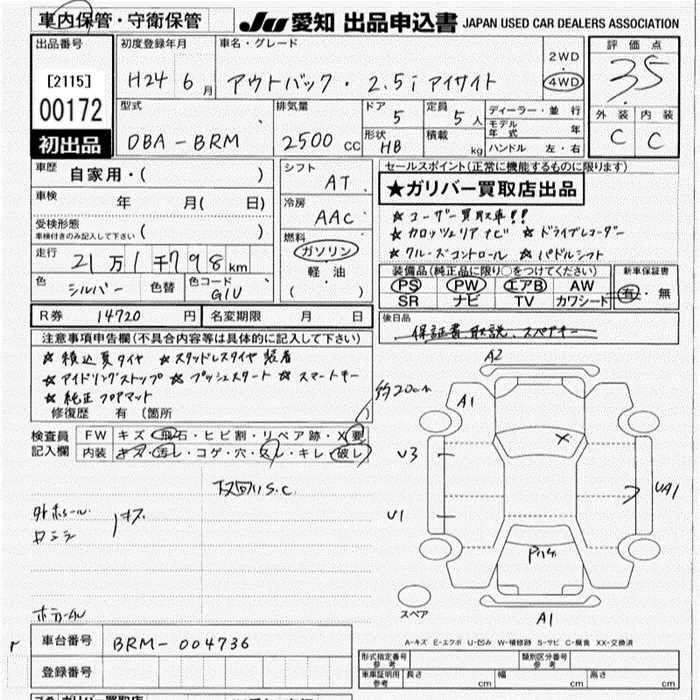 車内保管・守衛保管
JU 愛知 出品申込書 JAPAN USED CAR DEALERS ASSOCIATION
出品番号 初度登録年月 車名・グレード 2WD 評価点
[2115] H24年6月 アウトバック・2.5i アイサイト 4WD 3.5
00172 型式 排気量 ドア 定員 ディーラー・並行 外装 内装
DBA-BRM 2500cc 5 5人 モデル年式 年 C C
初出品 形状 HB 積載 kg ハンドル 左・右
車歴 自家用・( ) シフト AT セールスポイント(正常に機能するものに限ります)
車検 年 月( 日) 冷房 AAC ★ガリバー買取店出品
受検形態 ( ) ☆ユーザー買取車!!
車検付きのみ記入して下さい 燃料 ☆カロッツェリアナビ ☆ドライブレコーダー
走行 21万1千798km ガソリン ☆クルーズコントロール ☆パドルシフト
色 シルバー 色替 色コード G1U 軽油 ( )
装備品(純正品に限り○をつけてください) 新車保証書
PS PW エアB AW 有・無
SR ナビ TV カワシート
R券 14720円 名変期限 月 日 後日品
保証書 取説、スペアキー
注意事項申告欄(不具合内容等は具体的に記入して下さい)
☆積込夏タイヤ ☆スタッドレスタイヤ装着
☆アイドリングストップ ☆プッシュスタート ☆スマートキー
☆純正フロアマット
修復歴 有(箇所 )
検査員 FW キズ・飛石・ヒビ割・リペア跡・X要
記入欄 内装 キズ・汚レ・コゲ・穴・スレ・キレ・破レ
約20cm
下回りS.C.
キズ
A2
A1
U3
U1
UA1
X
A1
スペア
A-キズ E-エクボ U-凹み W-補修跡 S-サビ C-腐食 XX-交換済
車台番号 BRM-004736
登録番号
形式指定番号 参考 類別区分番号 参考
車庫証明用 参考 長さ cm 幅 cm 高さ cm
ガリバー買取店